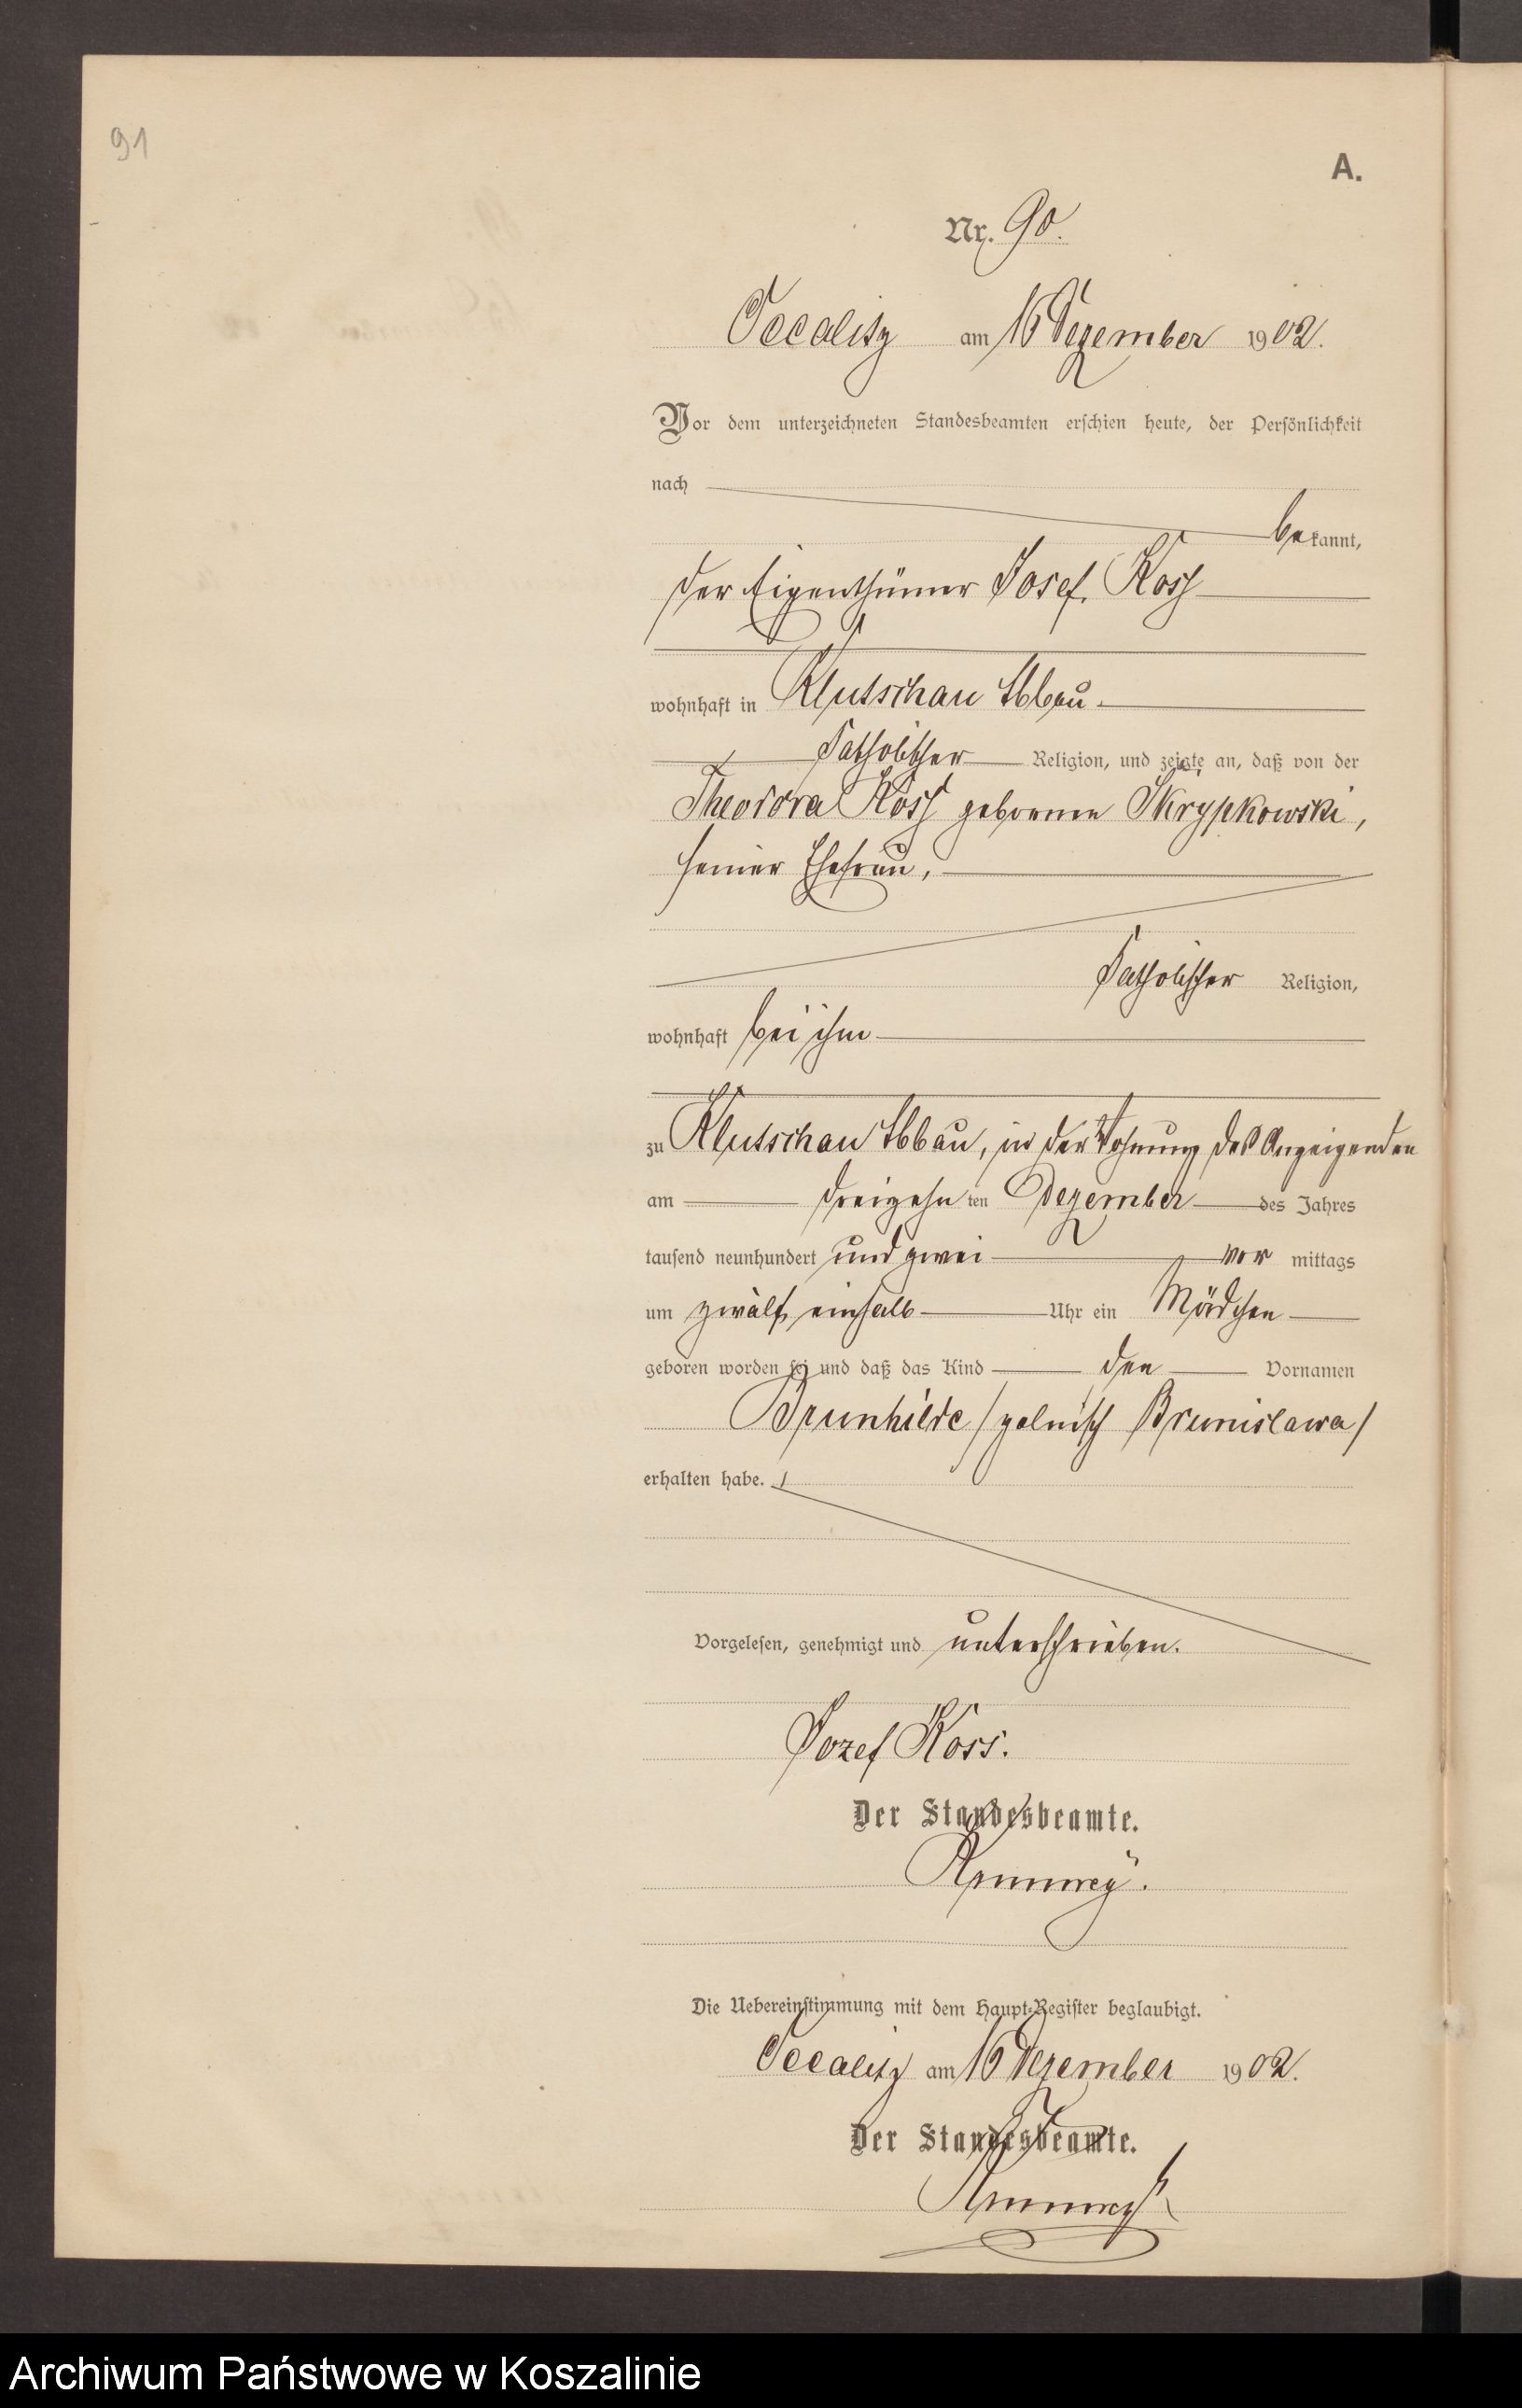 91
A.
Nr. 90.
Occalitz am 16 Dezember 1902.
Vor dem unterzeichneten Standesbeamten erschien heute, der Persönlichkeit
nach
bekannt,
der Eigenthümer Josef Koss
wohnhaft in Klutschau Abbau
katholischer Religion, und zeigte an, daß von der
Theodora Koss geborenen Skrypkowski,
seiner Ehefrau,
katholischer Religion,
wohnhaft bei ihm
zu Klutschau Abbau, in der Wohnung des Anzeigenden
am dreizehn ten Dezember des Jahres
tausend neunhundert und zwei vor mittags
um zwölf einhalb Uhr ein Mädchen
geboren worden sei und daß das Kind den Vornamen
Brunhilde /polnisch Brunislawa/
erhalten habe.
Vorgelesen, genehmigt und unterschrieben.
Jozef Koss.
Der Standesbeamte.
Die Uebereinstimmung mit dem Haupt-Register beglaubigt.
Occalitz am 16 Dezember 1902.
Der Standesbeamte.
Archiwum Państwowe w Koszalinie